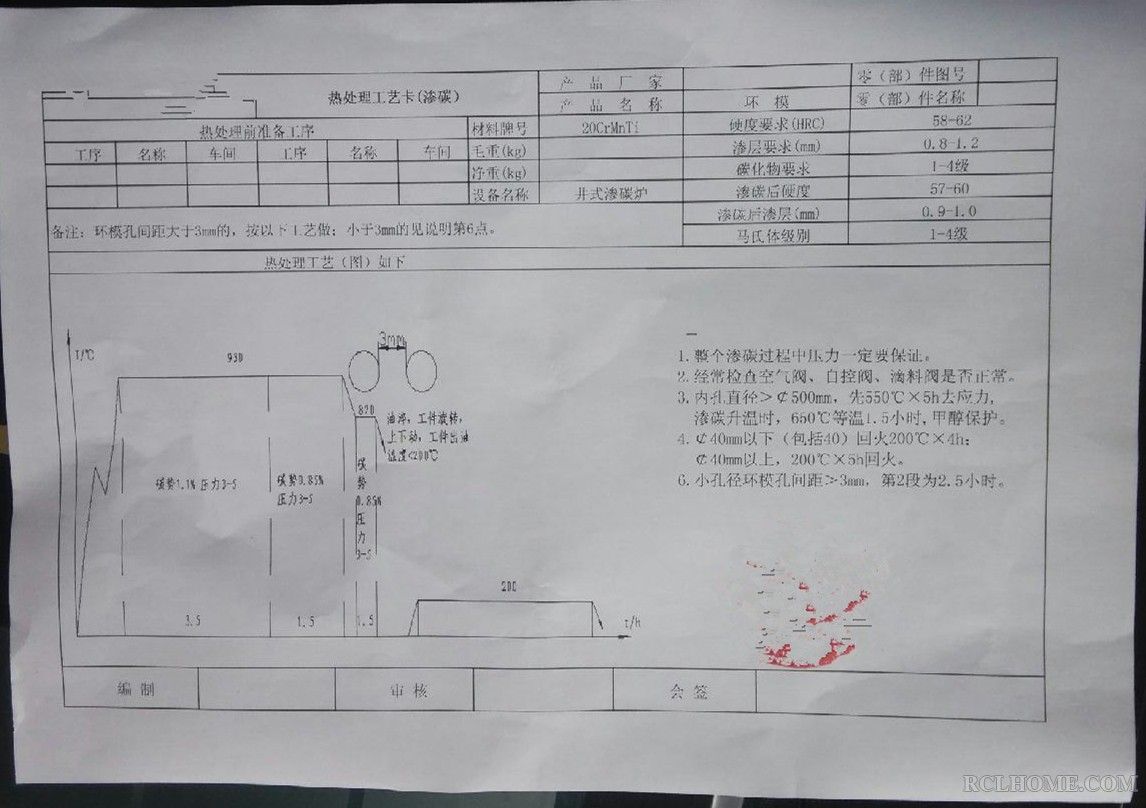 热处理工艺卡(渗碳)
产品厂家
零（部）件图号
产品名称
环模
零（部）件名称
热处理前准备工序
材料牌号
20CrMnTi
硬度要求(HRC)
58-62
工序 名称 车间 工序 名称 车间
毛重(kg)
渗层要求(mm)
0.8-1.2
净重(kg)
碳化物要求
1-4级
设备名称
井式渗碳炉
渗碳后硬度
57-60
渗碳后渗层(mm)
0.9-1.0
备注：环模孔间距大于3mm的，按以下工艺做；小于3mm的见说明第6点。
马氏体级别
1-4级
热处理工艺（图）如下
T/℃
930
3mm
820
油淬，工件旋转，
上下动，工件出油
温度<200℃
碳势1.1% 压力3-5
碳势0.85%
压力3-5
碳
势
0.85%
压
力
3-5
3.5
1.5
1.5
200
t/h
1.整个渗碳过程中压力一定要保证。
2.经常检查空气阀、自控阀、滴料阀是否正常。
3.内孔直径＞¢500mm，先550℃×5h去应力，
渗碳升温时，650℃等温1.5小时,甲醇保护。
4.¢40mm以下（包括40）回火200℃×4h；
¢40mm以上，200℃×5h回火。
6.小孔径环模孔间距＞3mm，第2段为2.5小时。
编制
审核
会签
RCLHOME.COM